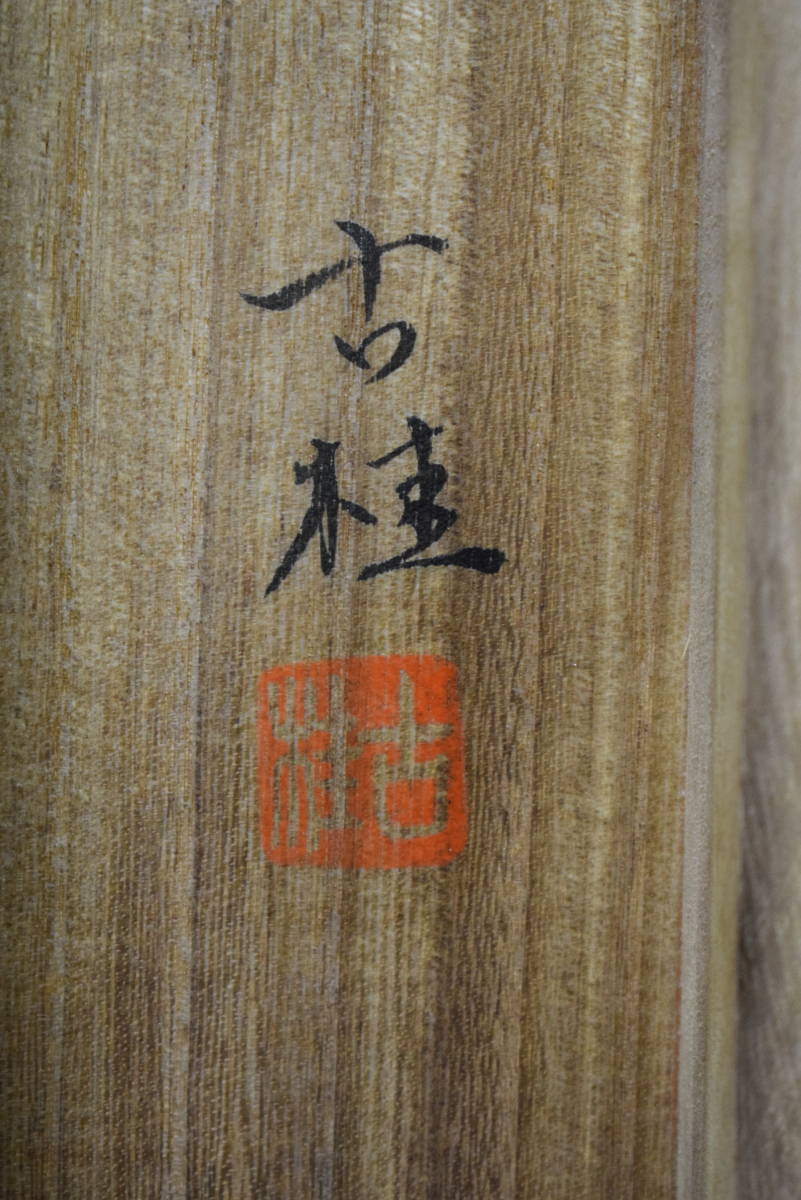 古桂
古桂